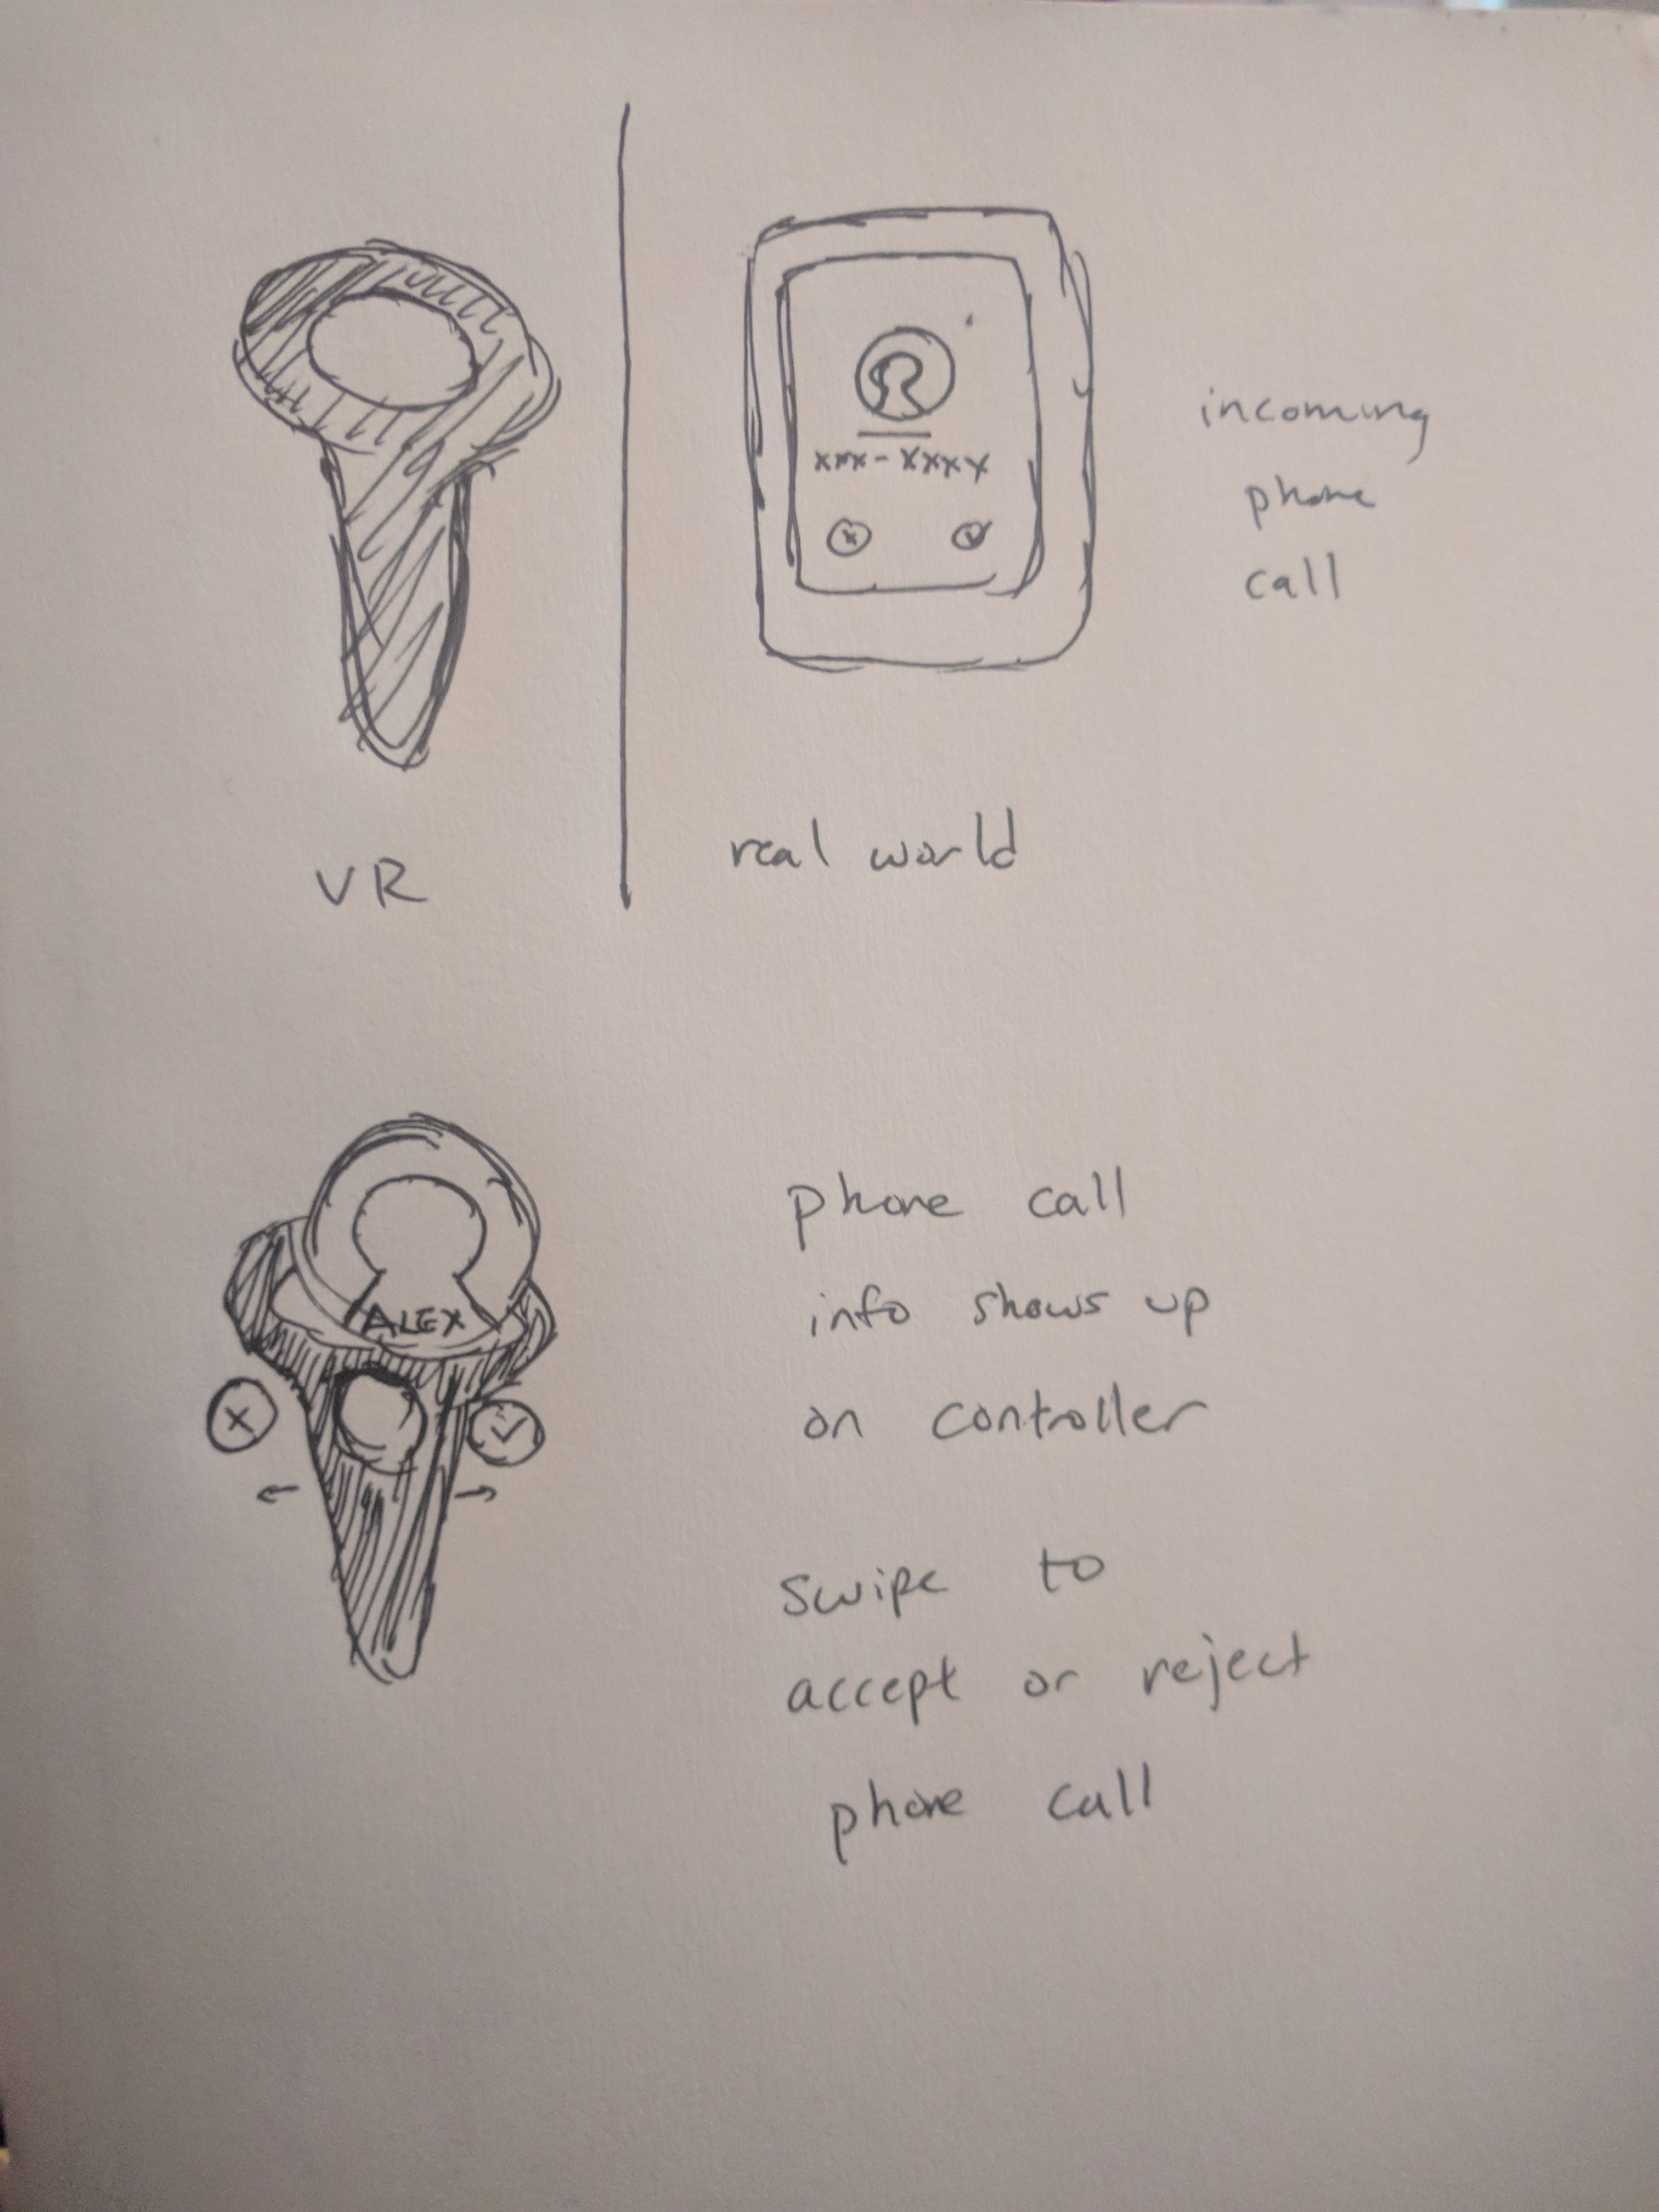 xxx-xxxx
incoming
phone
call
VR
real world
ALEX
phone call
info shows up
on controller
swipe to
accept or reject
phone call